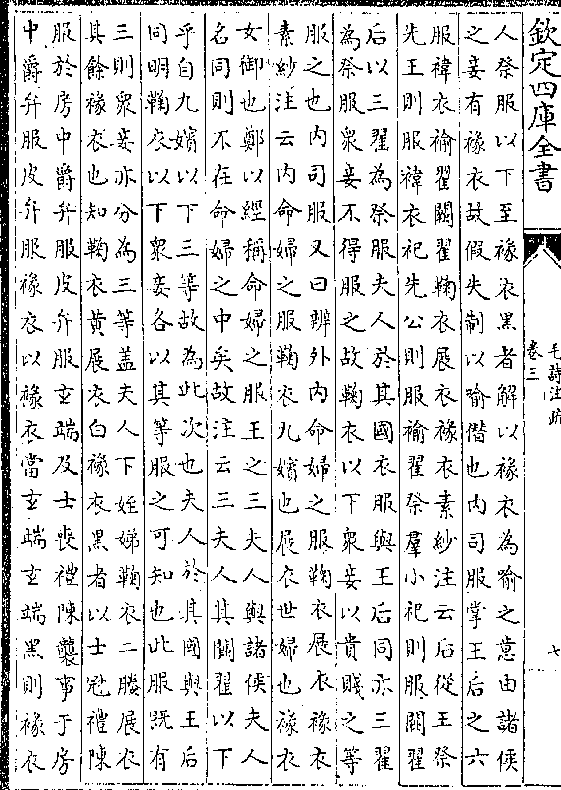 欽定四庫全書
毛詩注疏
卷三
七
人祭服以下至褖衣黑者解以褖衣為喻之意由諸侯
之妾有褖衣故假失制以喻僭也内司服掌王后之六
服褘衣褕翟闕翟鞠衣展衣褖衣素紗注云后從王祭
先王則服褘衣祀先公則服褕翟祭羣小祀則服闕翟
后以三翟為祭服夫人於其國衣服與王后同亦三翟
為祭服衆妾不得服之故鞠衣以下衆妾以貴賤之等
服之也内司服又曰辨外内命婦之服鞠衣展衣褖衣
素紗注云内命婦之服鞠衣九嬪也展衣世婦也褖衣
女御也鄭以經稱命婦之服王之三夫人與諸侯夫人
名同則不在命婦之中矣故注云三夫人其闕翟以下
乎自九嬪以下三等故為此次也夫人於其國與王后
同明鞠衣以下衆妾各以其等服之可知也此服既有
三則衆妾亦分為三等盖夫人下姪娣鞠衣二媵展衣
其餘褖衣也知鞠衣黄展衣白褖衣黑者以士冠禮陳
服於房中爵弁服皮弁服玄端及士喪禮陳襲事于房
中爵弁服皮弁服褖衣以褖衣當玄端玄端黑則褖衣